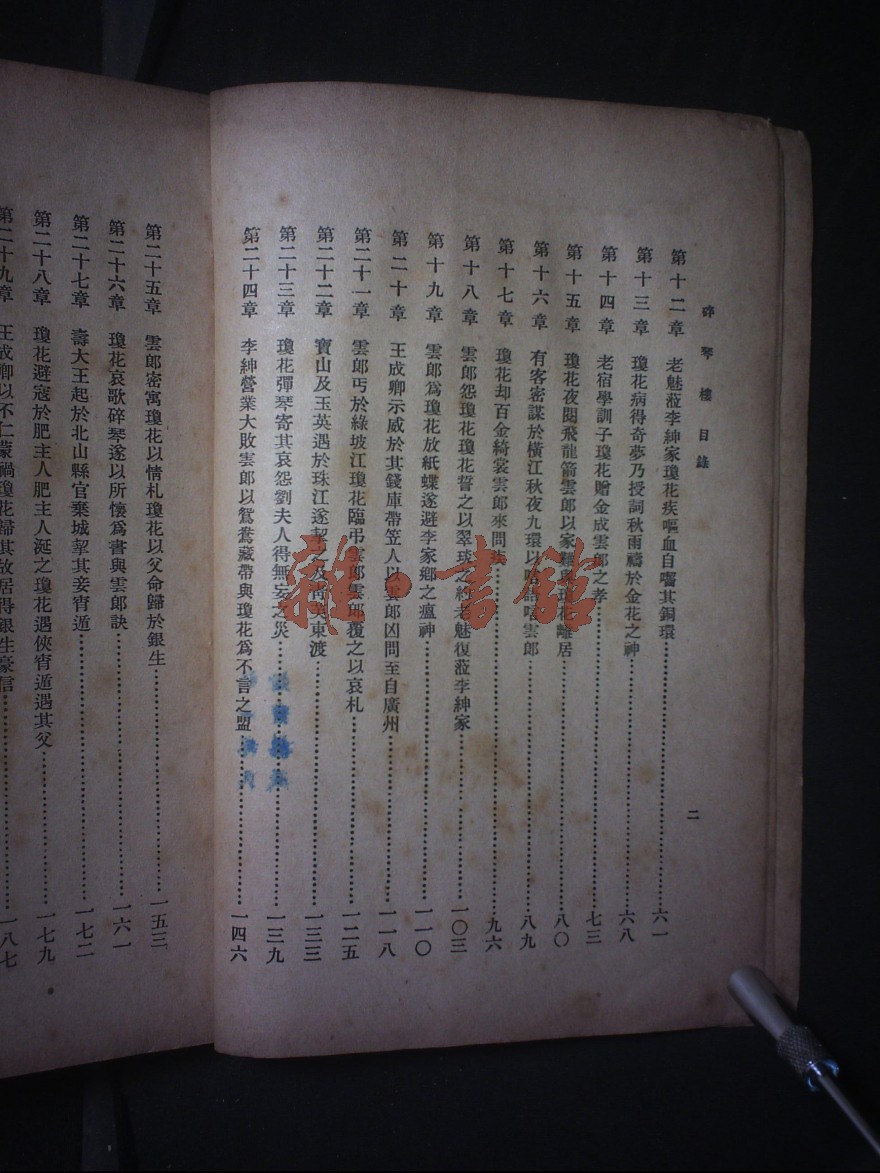 碎琴樓目錄
二
第十二章 老魅蒞李紳家瓊花疾嘔血自囓其銅環 六一
第十三章 瓊花病得奇夢乃授詞秋雨禱於金花之神 六八
第十四章 老宿學訓子瓊花贈金成雲郎之孝 七三
第十五章 瓊花夜閱飛龍箭雲郎以家難與瓊花離居 八〇
第十六章 有客密謀於橫江秋夜九環以 雲郎 八九
第十七章 瓊花却百金綺裳雲郎來問疾 九六
第十八章 雲郎怨瓊花瓊花誓之以翠琰之約老魅復蒞李紳家 一〇三
第十九章 雲郎爲瓊花放紙蝶遂避李家鄉之瘟神 一一〇
第二十章 王成卿示威於其錢庫帶笠人以雲郎凶問至自廣州 一一八
第二十一章 雲郎丐於綠坡江瓊花臨弔雲郎雲郎覆之以哀札 一二五
第二十二章 寶山及玉英遇於珠江遂挈 東渡 一三三
第二十三章 瓊花彈琴寄其哀怨劉夫人得無妄之災 一三九
第二十四章 李紳營業大敗雲郎以鴛鴦藏帶與瓊花爲不言之盟 一四六
第二十五章 雲郎密寓瓊花以情札瓊花以父命歸於銀生 一五三
第二十六章 瓊花哀歌碎琴遂以所懷爲書與雲郎訣 一六一
第二十七章 壽大王起於北山縣官棄城挈其妾宵遁 一七二
第二十八章 瓊花避寇於肥主人肥主人涎之瓊花遇俠宵遁遇其父 一七九
第二十九章 王成卿以不仁蒙禍瓊花歸其故居得銀生豪信 一八七
雜·書館